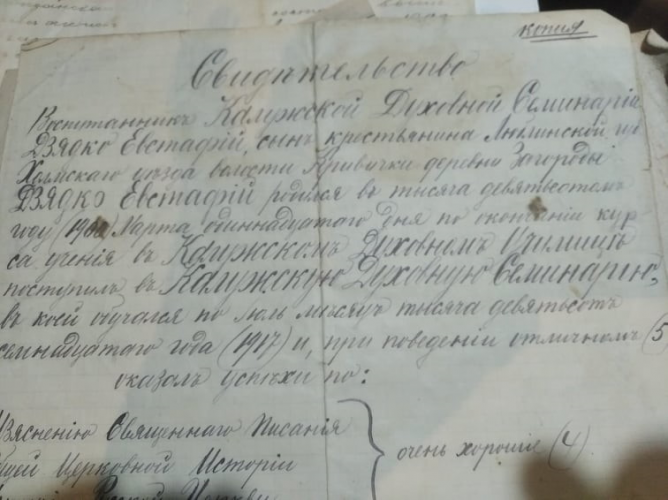 копия
Свидѣтельство
Воспитанникъ Калужской Духовной Семинаріи
Дзядко Евстафій, сынъ крестьянина Люблинской губ
Холмскаго уѣзда волости Кривички деревни Загороды
Дзядко Евстафій родился въ тысяча девятьсотомъ
году (1900) Марта одиннадцатого дня по окончаніи кур-
са ученія въ Калужскомъ Духовномъ Училищѣ
поступилъ въ Калужскую Духовную Семинарію,
въ коей обучался по Іюль мѣсяцъ тысяча девятьсотъ
семнадцатаго года (1917) и, при поведеніи отличномъ (5
оказалъ успѣхи по:
Изясненію Священнаго Писанія
очень хорошіе (4).
Церковной Исторіи
Русской Церкви